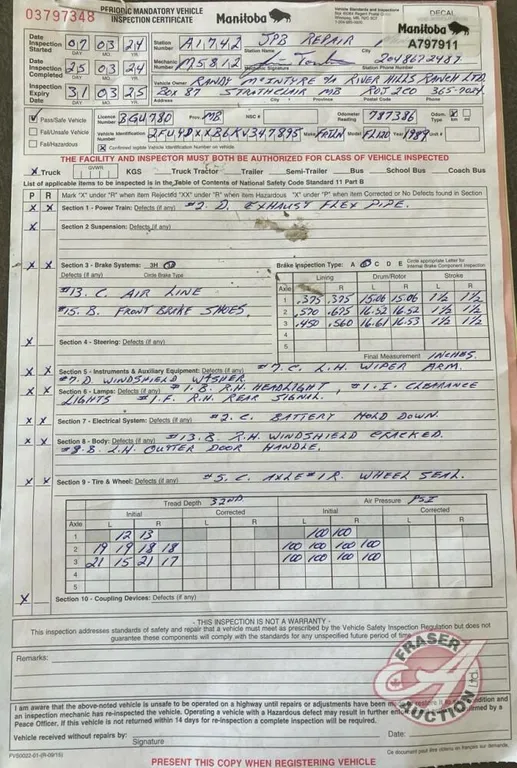 03797348
PERIODIC MANDATORY VEHICLE
INSPECTION CERTIFICATE
Manitoba
Vehicle Standards and Inspections
DECAL
Manitoba
A797911
Date Inspection Started 07 03 24
DAY MO. YR.
Station Number A1742
JPB REPAIR
Station Name City
Date Inspection Completed 25 03 24
DAY MO. YR.
Mechanic Number M5812
2048672487
Mechanic Signature Station Phone Number
Inspection Expiry Date 31 03 25
DAY MO. YR.
Vehicle Owner RANDY MCINTYRE T/A RIVER HILLS RANCH LTD.
BOX 87 STRATHCLAIR MB R0J 2C0 365-7024
Address City Province Postal Code Phone
Pass/Safe Vehicle
Licence Number BGU780 Prov. MB NSC # Odometer Reading 787386 Odom. Type km mi
Fail/Unsafe Vehicle
Vehicle Identification Number 2FUYDXXB6KV347895 Make FRTLN Model FL120 Year 1989 Unit #
Fail/Hazardous
Confirmed legible Vehicle Identification Number on vehicle
THE FACILITY AND INSPECTOR MUST BOTH BE AUTHORIZED FOR CLASS OF VEHICLE INSPECTED
X Truck GVWR KGS Truck Tractor Trailer Semi-Trailer Bus School Bus Coach Bus
List of applicable items to be inspected is in the Table of Contents of National Safety Code Standard 11 Part B
P R Mark "X" under "R" when item Rejected "XX" under "R" when item Hazardous "X" under "P" when item Corrected or No Defects found in Section
X X Section 1 - Power Train: Defects (if any) #2. D. EXHAUST FLEX PIPE.
X Section 2 Suspension: Defects (if any)
X X Section 3 - Brake Systems: 3H
Brake Inspection Type: A B C D E Circle appropriate Letter for Internal Brake Component Inspection
Defects (if any) Circle Brake Type
Lining Drum/Rotor Stroke
Axle L R L R L R
#13. C. AIR LINE
1 .375 .375 15.06 15.06 1½ 1½
#15. B. FRONT BRAKE SHOES,
2 .570 .675 16.52 16.52 1½ 1½
3 .450 .560 16.61 16.53 1½ 1½
4
5
X Section 4 - Steering: Defects (if any)
Final Measurement INCHES.
X X Section 5 - Instruments & Auxiliary Equipment: Defects (if any) #7. C. L.H. WIPER ARM.
#7. D WINDSHIELD WASHER.
X X Section 6 - Lamps: Defects (if any) #1. B. R.H. HEADLIGHT, #1. I. CLEARANCE
LIGHTS #1. F. R.H. REAR SIGNAL.
X X Section 7 - Electrical System: Defects (if any) #2. C. BATTERY HOLD DOWN.
X X Section 8 - Body: Defects (if any) #13. B R.H. WINDSHIELD CRACKED.
#8. B. L.H. OUTTER DOOR HANDLE.
X X Section 9 - Tire & Wheel: Defects (if any) #5. C. AXLE #1 R. WHEEL SEAL.
Tread Depth 32ND Air Pressure PSI
Initial Corrected Initial Corrected
Axle L R L R L R L R
1 12 13 100 100
2 19 19 18 18 100 100 100 100
3 21 15 21 17 100 100 100 100
4
5
X Section 10 - Coupling Devices: Defects (if any)
- THIS INSPECTION IS NOT A WARRANTY -
This inspection addresses standards of safety and repair that a vehicle must meet as prescribed by the Vehicle Safety Inspection Regulation but does not
guarantee these components will comply with the standards for any unspecified future period of time.
Remarks:
FRASER
AUCTION
I am aware that the above-noted vehicle is unsafe to be operated on a highway until repairs or adjustments have been
an inspection mechanic has re-inspected the vehicle. Operating a vehicle with a Hazardous defect may result in further
Peace Officer. If this vehicle is not returned within 14 days for re-inspection a complete inspection will be required.
Vehicle received without repairs by: Date:
Signature
Ce document peut être obtenu en français sur demande.
PRESENT THIS COPY WHEN REGISTERING VEHICLE